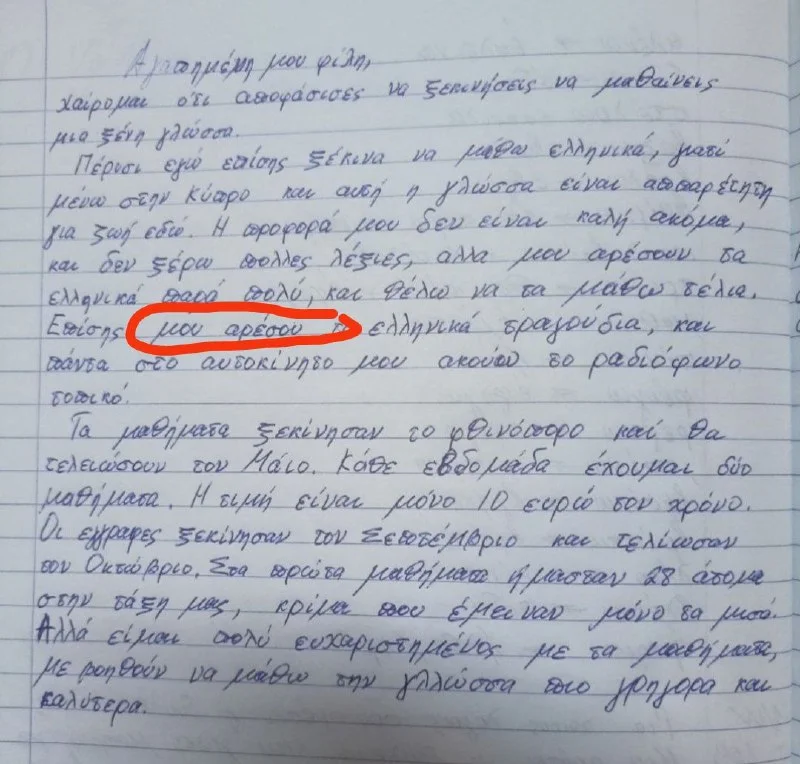 Αγαπημένη μου φίλη,
χαίρομαι ότι αποφάσισες να ξεκινήσεις να μαθαίνεις
μια ξένη γλώσσα.
Πέρυσι εγώ επίσης ξέκινα να μάθω ελληνικά, γιατί
μένω στην Κύπρο και αυτή η γλώσσα είναι απαραίτητη
για ζωή εδώ. Η προφορά μου δεν είναι καλή ακόμα,
και δεν ξέρω πολλες λέξιες, αλλα μου αρέσουν τα
ελληνικά παρά πολύ, και θέλω να τα μάθω τέλια.
Επίσης μου αρέσου τα ελληνικά τραγούδια, και
πάντα στο αυτοκίνητο μου ακούω το ραδιόφωνο
τοπικό.
Τα μαθήματα ξεκίνησαν το φθινόπορο και θα
τελειώσουν τον Μάιο. Κάθε εβδομάδα έχουμαι δύο
μαθήματα. Η τιμή είναι μόνο 10 ευριώ τον χρόνο.
Οι εγγραφες ξεκίνησαν τον Σεπτέμβριο και τελίωσαν
τον Οκτώβριο. Στα πρώτα μαθήματα ήμασταν 28 άτομα
στην τάξη μας, κρίμα που έμειναν μόνο τα μισά.
Αλλά είμαι πολύ ευχαριστημένος με τα μαθήματα,
με βοηθούν να μάθω την γλλώσσα πιο γρήγορα και
καλύτερα.